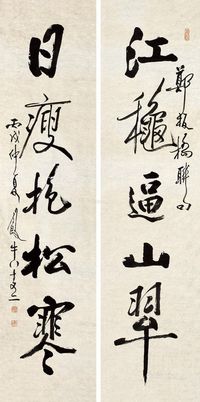 鄭板橋聯句
江穐逼山翠
日瘦抱松寒
丙戌仲夏牛八十又二